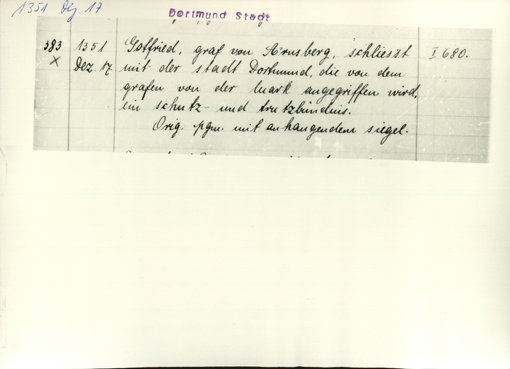 1351 Dez 17
Dortmund Stadt
383 1351 Gottfried, graf von Arnsberg, schliesst I 680.
X Dez. 17 mit der stadt Dortmund, die von dem
grafen von der Mark angegriffen wird,
ein schutz- und trutzbündnis.
Orig. pgm. mit anhangendem siegel.